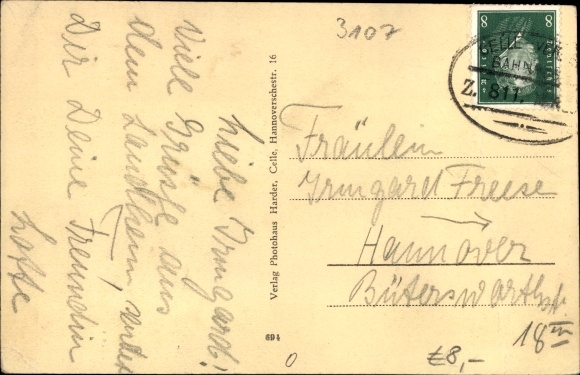 3107
Liebe Irmgard!
Viele Grüße aus
dem Landheim, sendet
Dir Deine Freundin
Lotte
Verlag Photohaus Harder, Celle, Hannoverschestr. 16
694
8 8
CELLE
BAHN
Z. 811
Fräulein
Irmgard Freese
Hannover
Büterswörthstr
18 III
€8,-
0